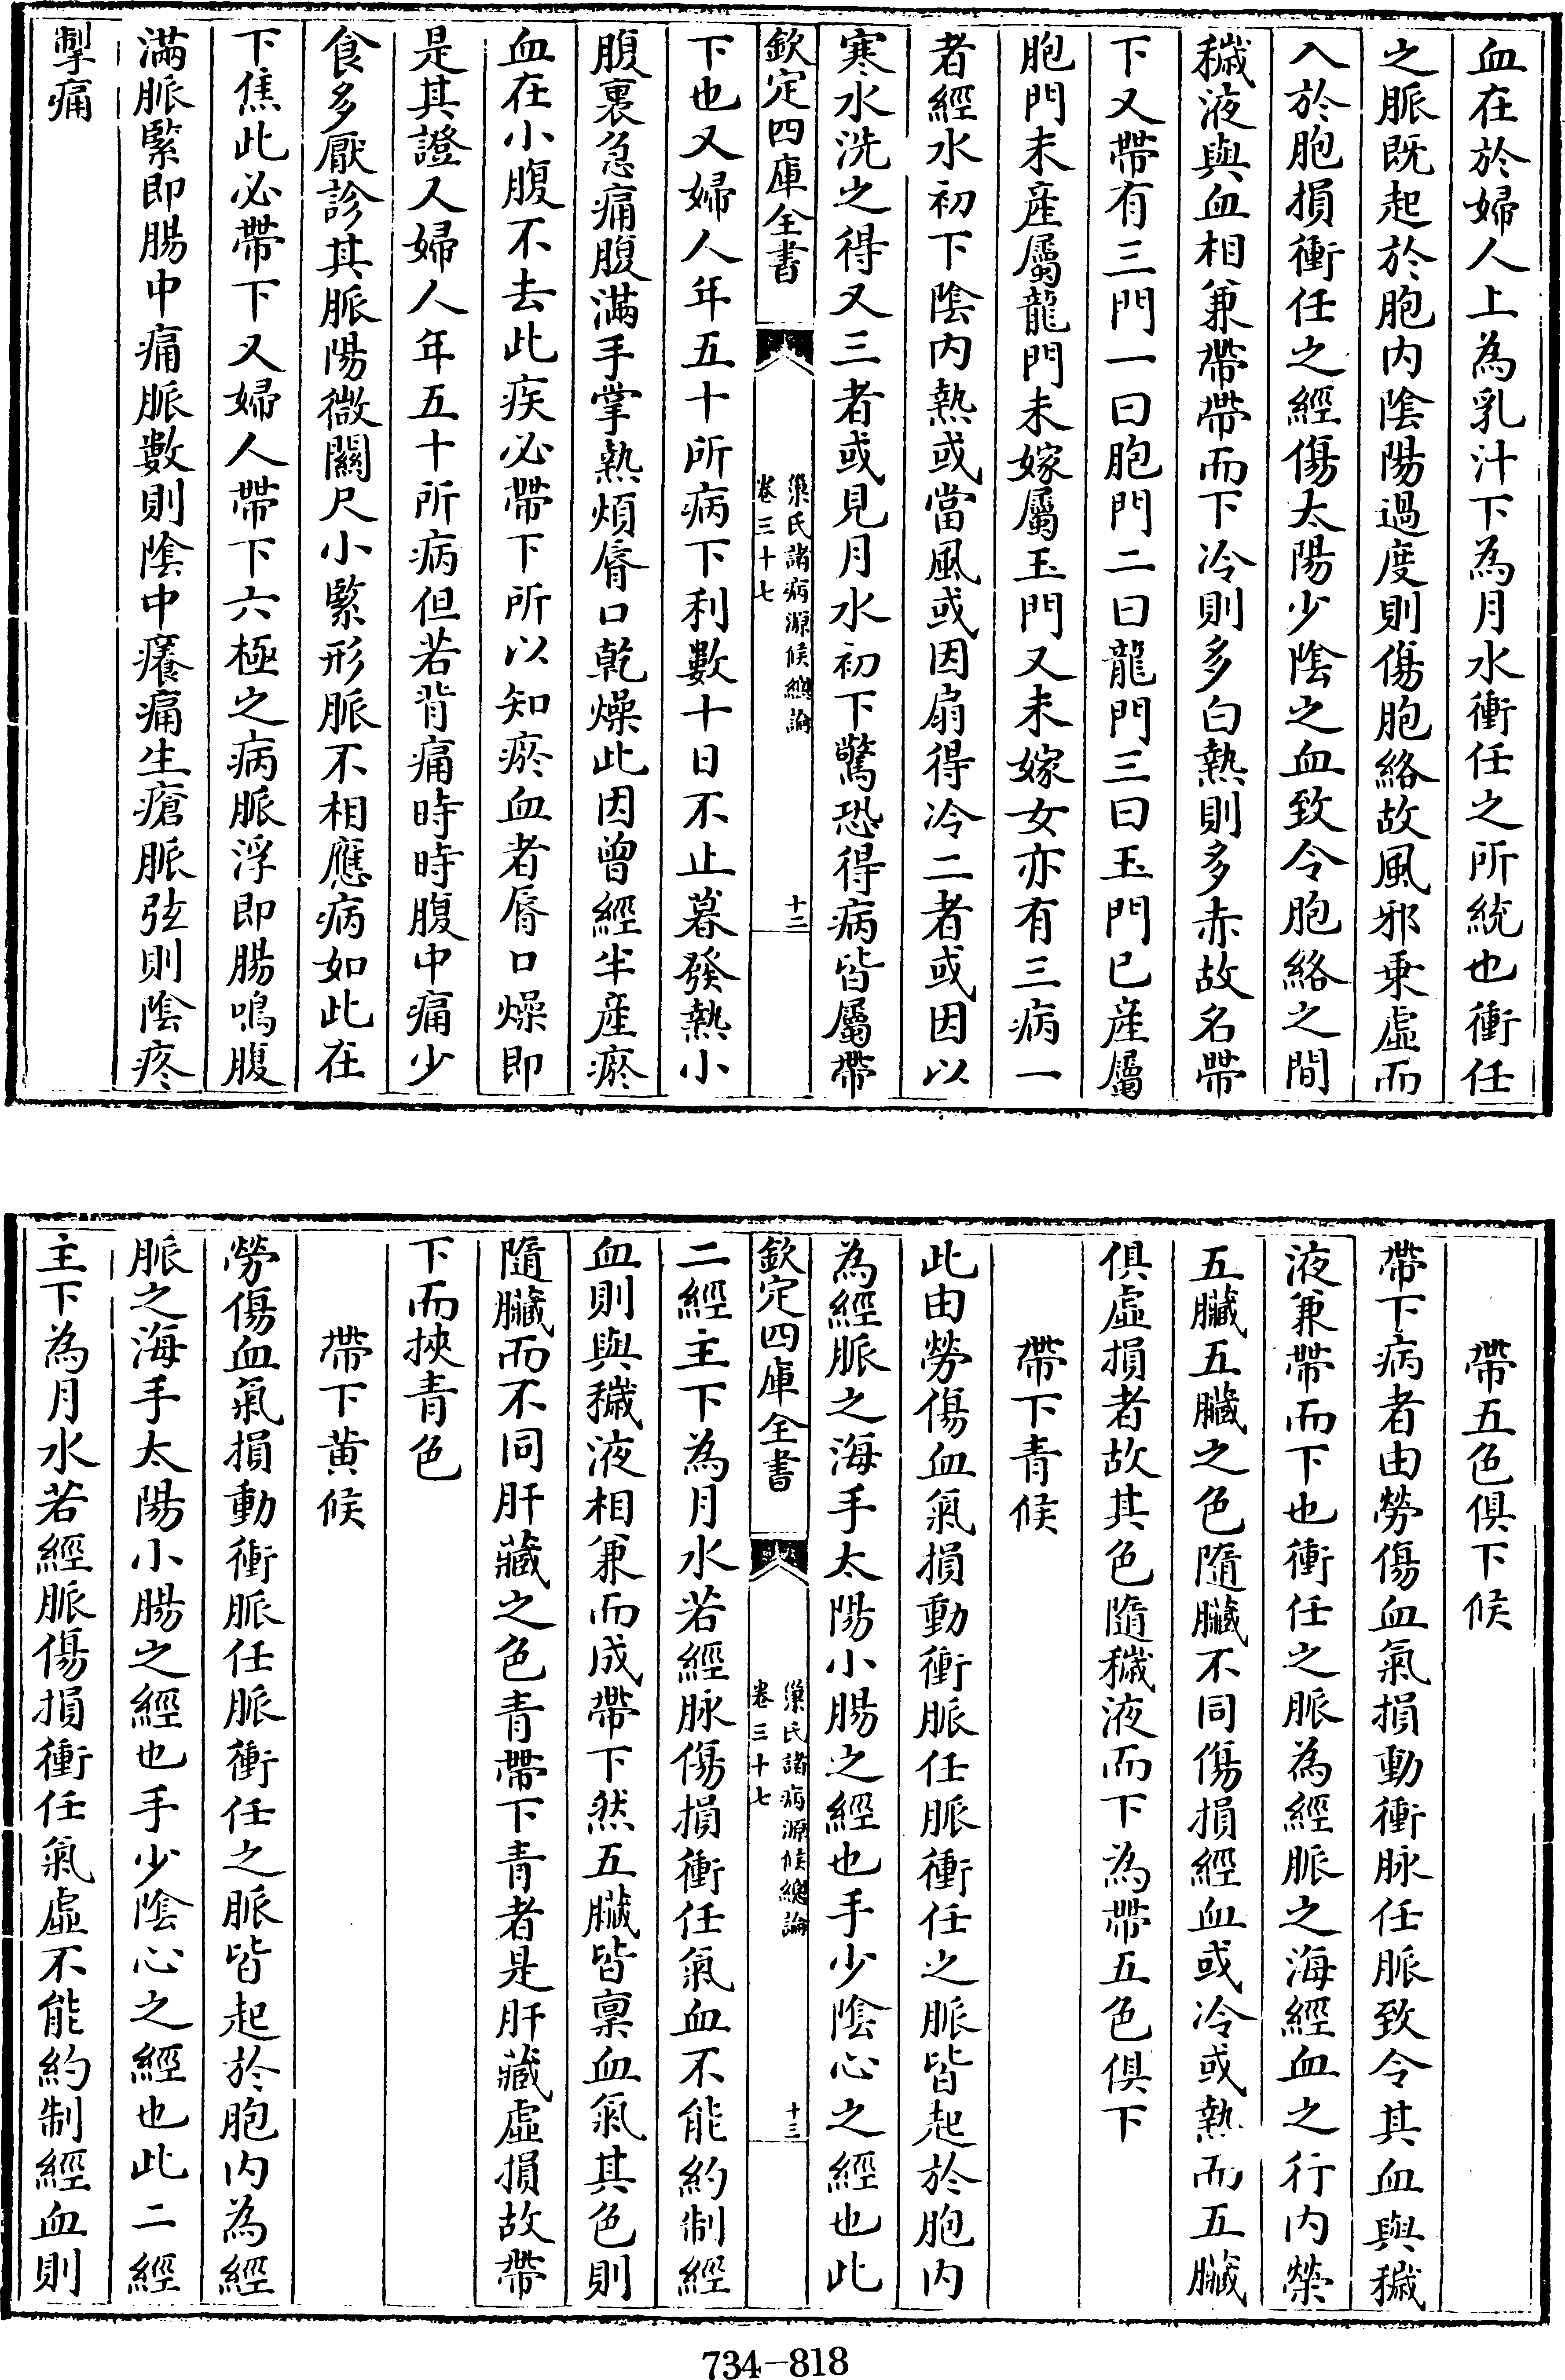 血在於婦人上為乳汁下為月水衝任之所統也衝任
之脈既起於胞内陰陽過度則傷胞絡故風邪乗虛而
入於胞損衝任之經傷太陽少陰之血致令胞絡之間
穢液與血相兼帶帶而下冷則多白熱則多赤故名帶
下又帶有三門一曰胞門二曰龍門三曰玉門已産屬
胞門未産屬龍門未嫁屬玉門又未嫁女亦有三病一
者經水初下陰内熱或當風或因扇得冷二者或因以
寒水洗之得又三者或見月水初下驚恐得病皆屬帶
欽定四庫全書
巢氏諸病源候總論
卷三十七
十二
下也又婦人年五十所病下利數十日不止暮發熱小
腹裏急痛腹滿手掌熱煩脣口乾燥此因曾經半産瘀
血在小腹不去此疾必帶下所以知瘀血者脣口燥即
是其證又婦人年五十所病但若背痛時時腹中痛少
食多厭診其脈陽微關尺小緊形脈不相應病如此在
下焦此必帶下又婦人帶下六極之病脈浮即腸鳴腹
滿脈緊即腸中痛脈數則陰中癢痛生瘡脈弦則陰疼
掣痛
帶五色俱下候
帶下病者由勞傷血氣損動衝脉任脈致令其血與穢
液兼帶而下也衝任之脈為經脈之海經血之行内榮
五臟五臟之色隨臟不同傷損經血或冷或熱而五臟
俱虛損者故其色隨穢液而下為帶五色俱下
帶下青候
此由勞傷血氣損動衝脈任脈衝任之脈皆起於胞内
為經脈之海手太陽小腸之經也手少陰心之經也此
欽定四庫全書
巢氏諸病源候總論
卷三十七
十三
二經主下為月水若經脉傷損衝任氣血不能約制經
血則與穢液相兼而成帶下然五臟皆禀血氣其色則
隨臟而不同肝藏之色青帶下青者是肝藏虛損故帶
下而挾青色
帶下黄候
勞傷血氣損動衝脈任脈衝任之脈皆起於胞内為經
脈之海手太陽小腸之經也手少陰心之經也此二經
主下為月水若經脈傷損衝任氣虛不能約制經血則
734-818